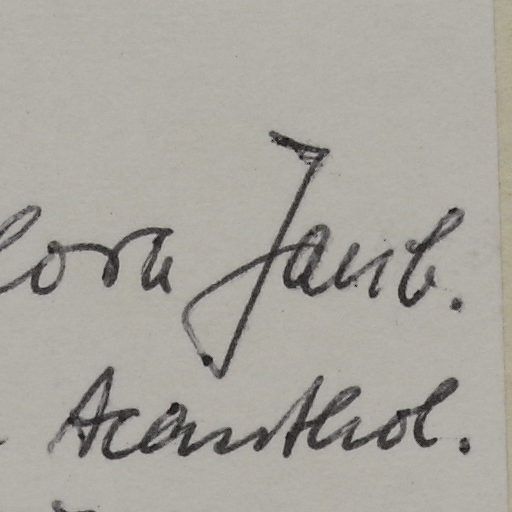 lora Jaub.
Acanthol.